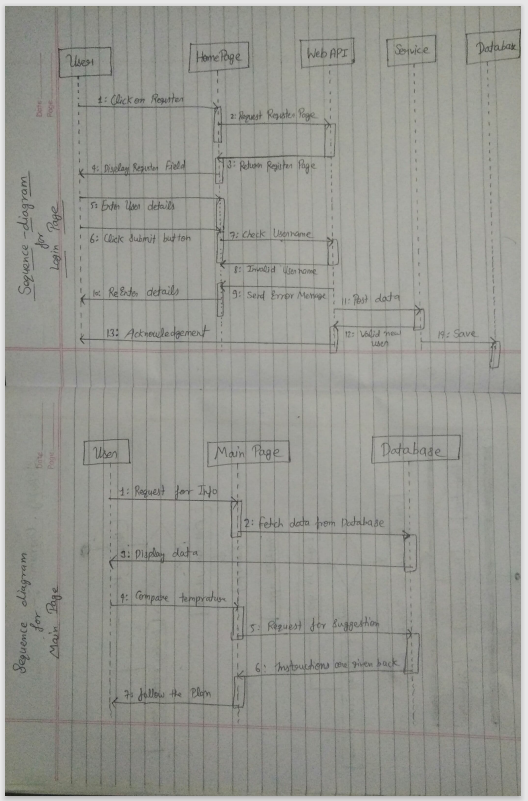 Date
Page
Sequence-diagram
for
Login Page
User
HomePage
WebAPI
Service
Database
1: Click on Register
2: Request Register Page
3: Return Register Page
4: Display Register Field
5: Enter User details
6: Click Submit button
7: Check Username
8: Invalid Username
9: Send Error Message
10: ReEnter details
11: Post data
12: Valid new
user
13: Acknowledgement
14: Save
Date
Page
Sequence diagram
for
Main Page
User
Main Page
Database
1: Request for Info
2: Fetch data from Database
3: Display data
4: Compare tempration
5: Request for Suggestion
6: Instructions are given back
7: follow the Plan